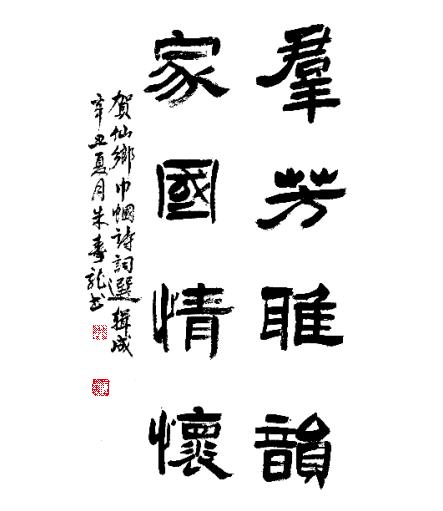 羣芳雎韻
家國情懷
賀仙鄉巾幗詩詞選輯成
辛丑夏月朱壽龍书